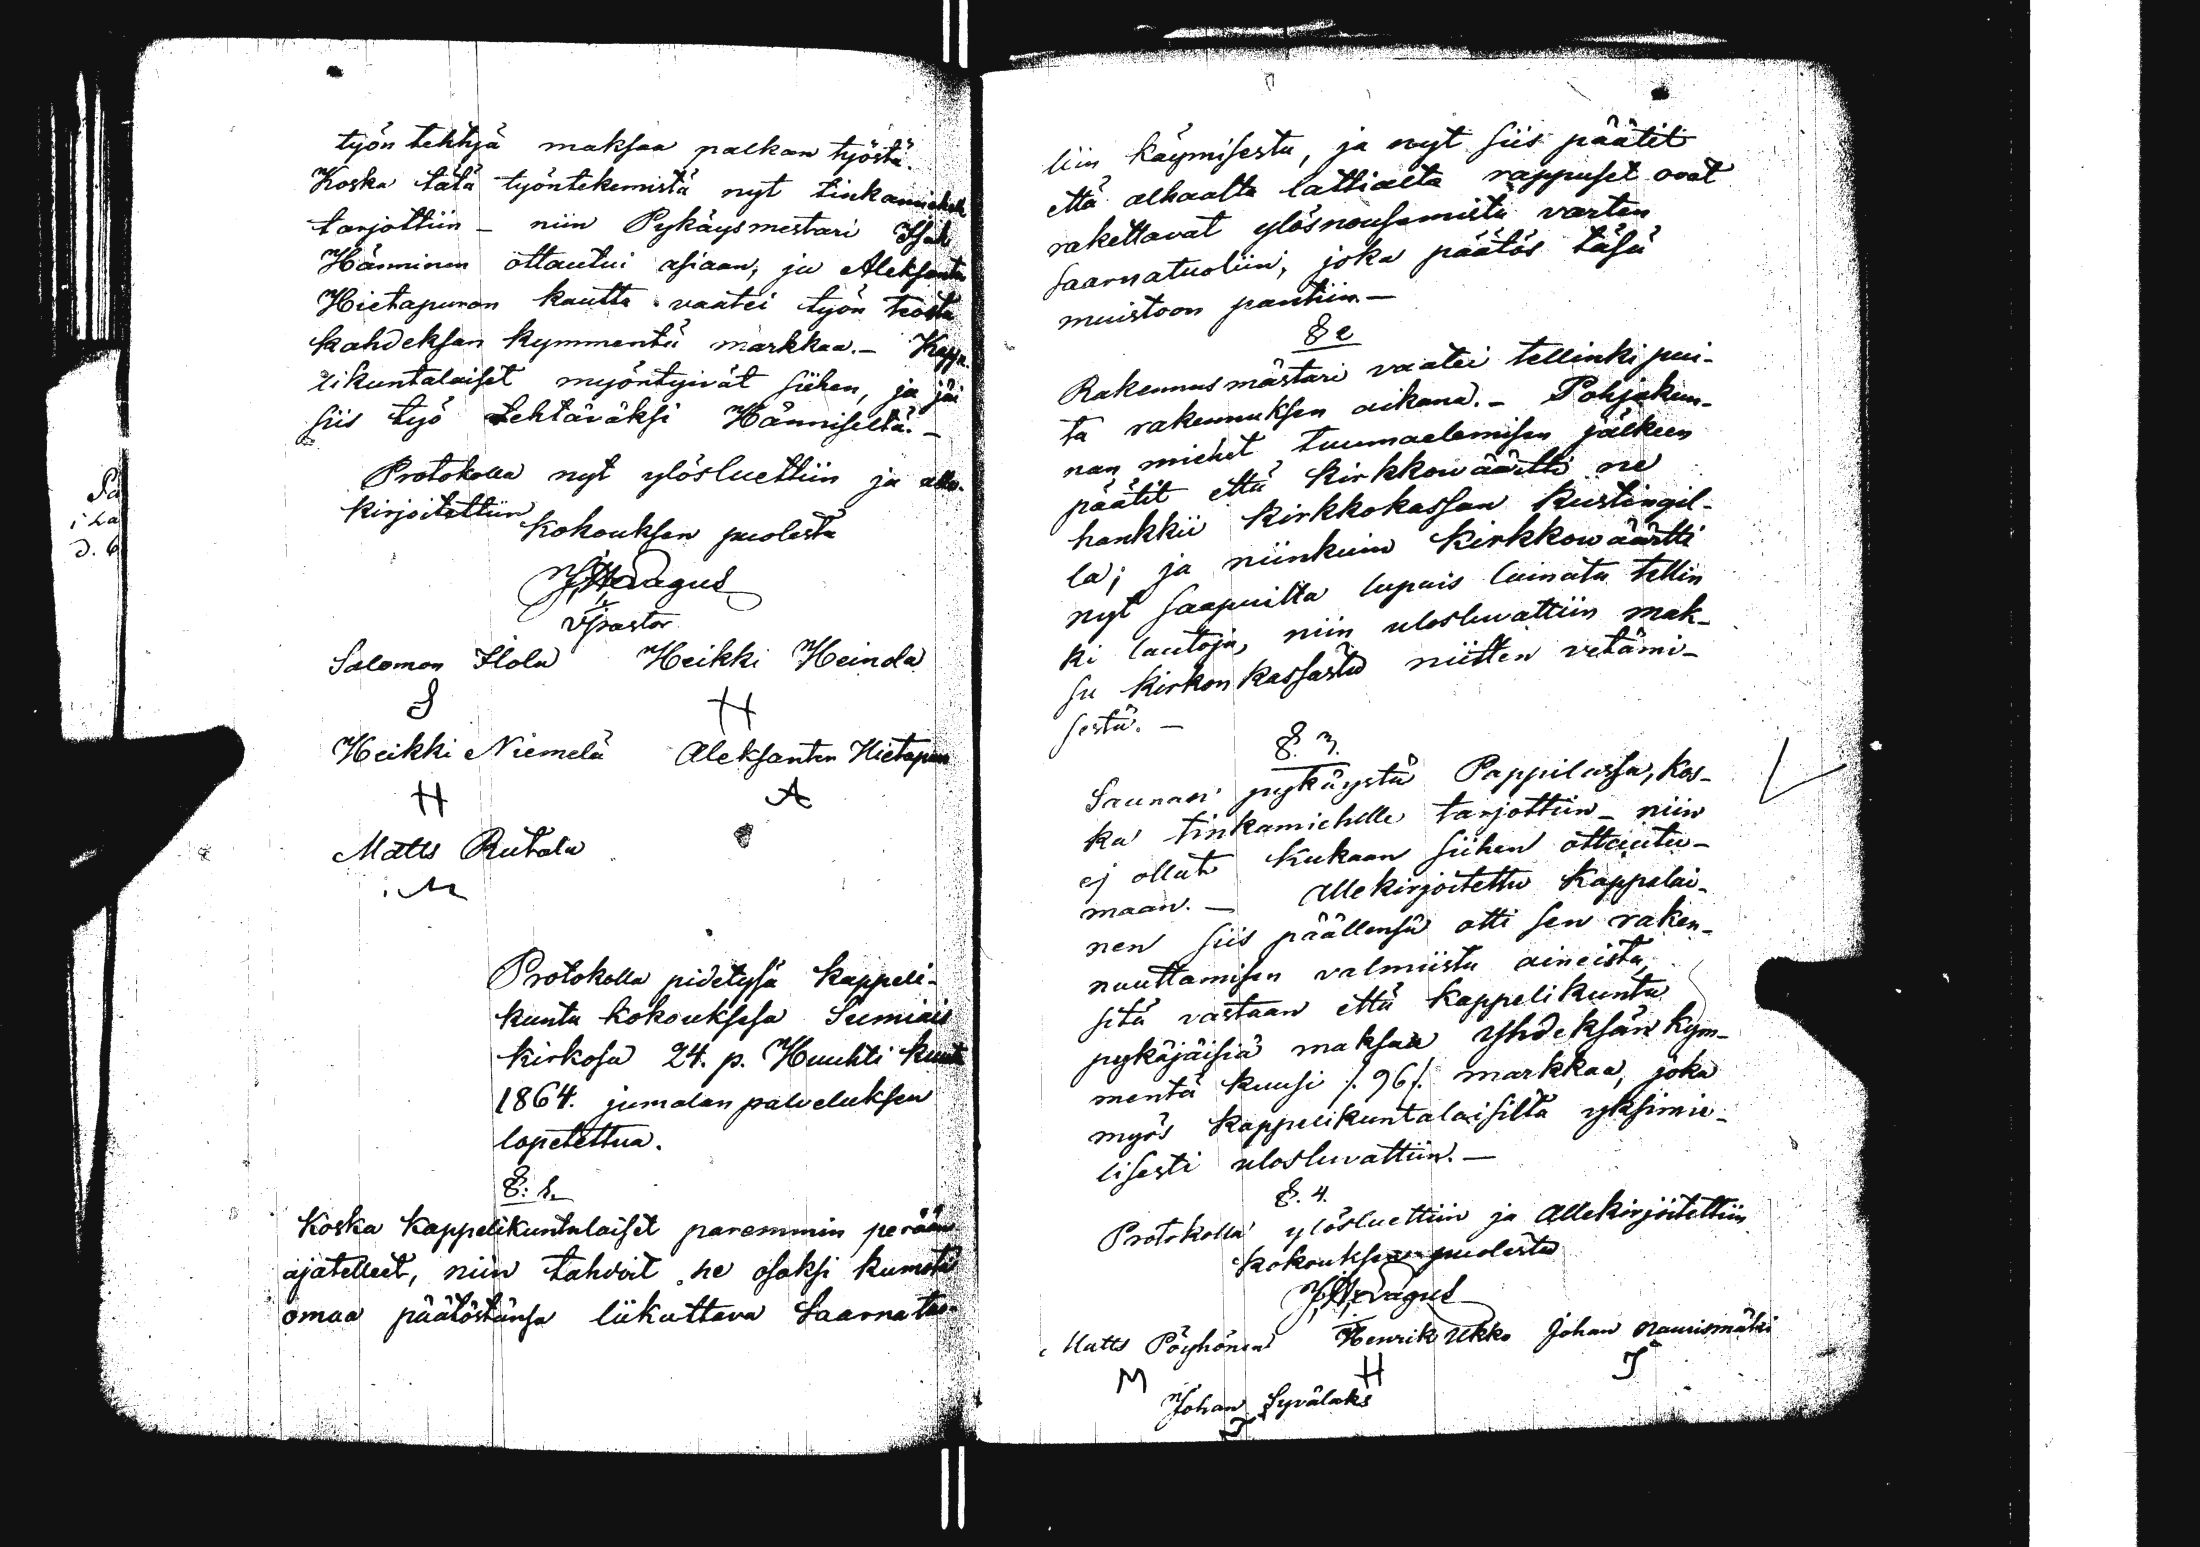 työn tehtyä maksaa palkan työstä.
Koska tätä työntekemistä nyt tinkamiehelle
tarjottiin – niin Pykäysmestari Isak
Hänninen ottautui asiaan, ja Aleksanta
Hietapuron kautta vaatei työn tästä
kahdeksan kymmentä markkaa. – Kappe
likuntalaiset myöntyivät siihen, ja jäi
siis työ tehtäväksi Hänniseltä. –
Protokolla nyt ylösluettiin ja alle-
kirjoitettiin
Kokouksen puolesta
V Pastor
Salomon Ilola Heikki Heinola
S H
Heikki Niemelä Aleksanten Hietapuro
H A
Matts Rutala
M
Protokolla pidetyssä kappeli-
kunta kokouksesa Sumiais
kirkosa 24. p. Huuhti kuuta
1864. jumalan palveluksen
lopetettua.
§. 1.
Koska kappelikuntalaiset paremmin perään
ajatelleet, niin tahdoit he osaksi kumota
omaa päätöstänsä liikuttava Saarnatuo-
liin käymisestä, ja nyt siis päätit
että alhaalta lattialta rappuset ovat
rakettavat ylösnousemista varten
saarnatuoliin, joka päätös täsä
muistoon pantiin. –
§ 2
Rakennusmästari vaatei tellinki pui-
ta rakennuksen aikana. – Pohjakun-
nan miehet tuumaelemisen jälkeen
päätit että kirkkowäärtti ne
hankkii kirkkokassan kustingil-
la; ja niinkuin kirkkowäärtti
nyt saapuilla lupais lainata tellin
ki lautoja, niin ulosluvattiin mak-
su kirkon kassasta niitten vetämi-
sestä. –
§. 3.
Saunan pykäystä Pappilassa, kos-
ka tinkamiehelle tarjottiin – niin
ej ollut kukaan siihen ottautu-
maan. – Allekirjoitettu Kappalai-
nen siis päällensä otti sen raken-
nuuttamisen valmiista aineista,
sitä vastaan että kappelikunta
pykäjäisiä maksaa yhdeksän kym-
mentä kuusi /. 96/. markkaa, joka
myös kappelikuntalaisilta yksimie-
lisesti ulosluvattiin. –
§. 4.
Protokolla ylösluettiin ja allekirjoitettiin
Kokouksen puolesta
Matts Pöyhönen Henrik Ukko Johan Nauismäki
M H J
Johan Syvälaks
J